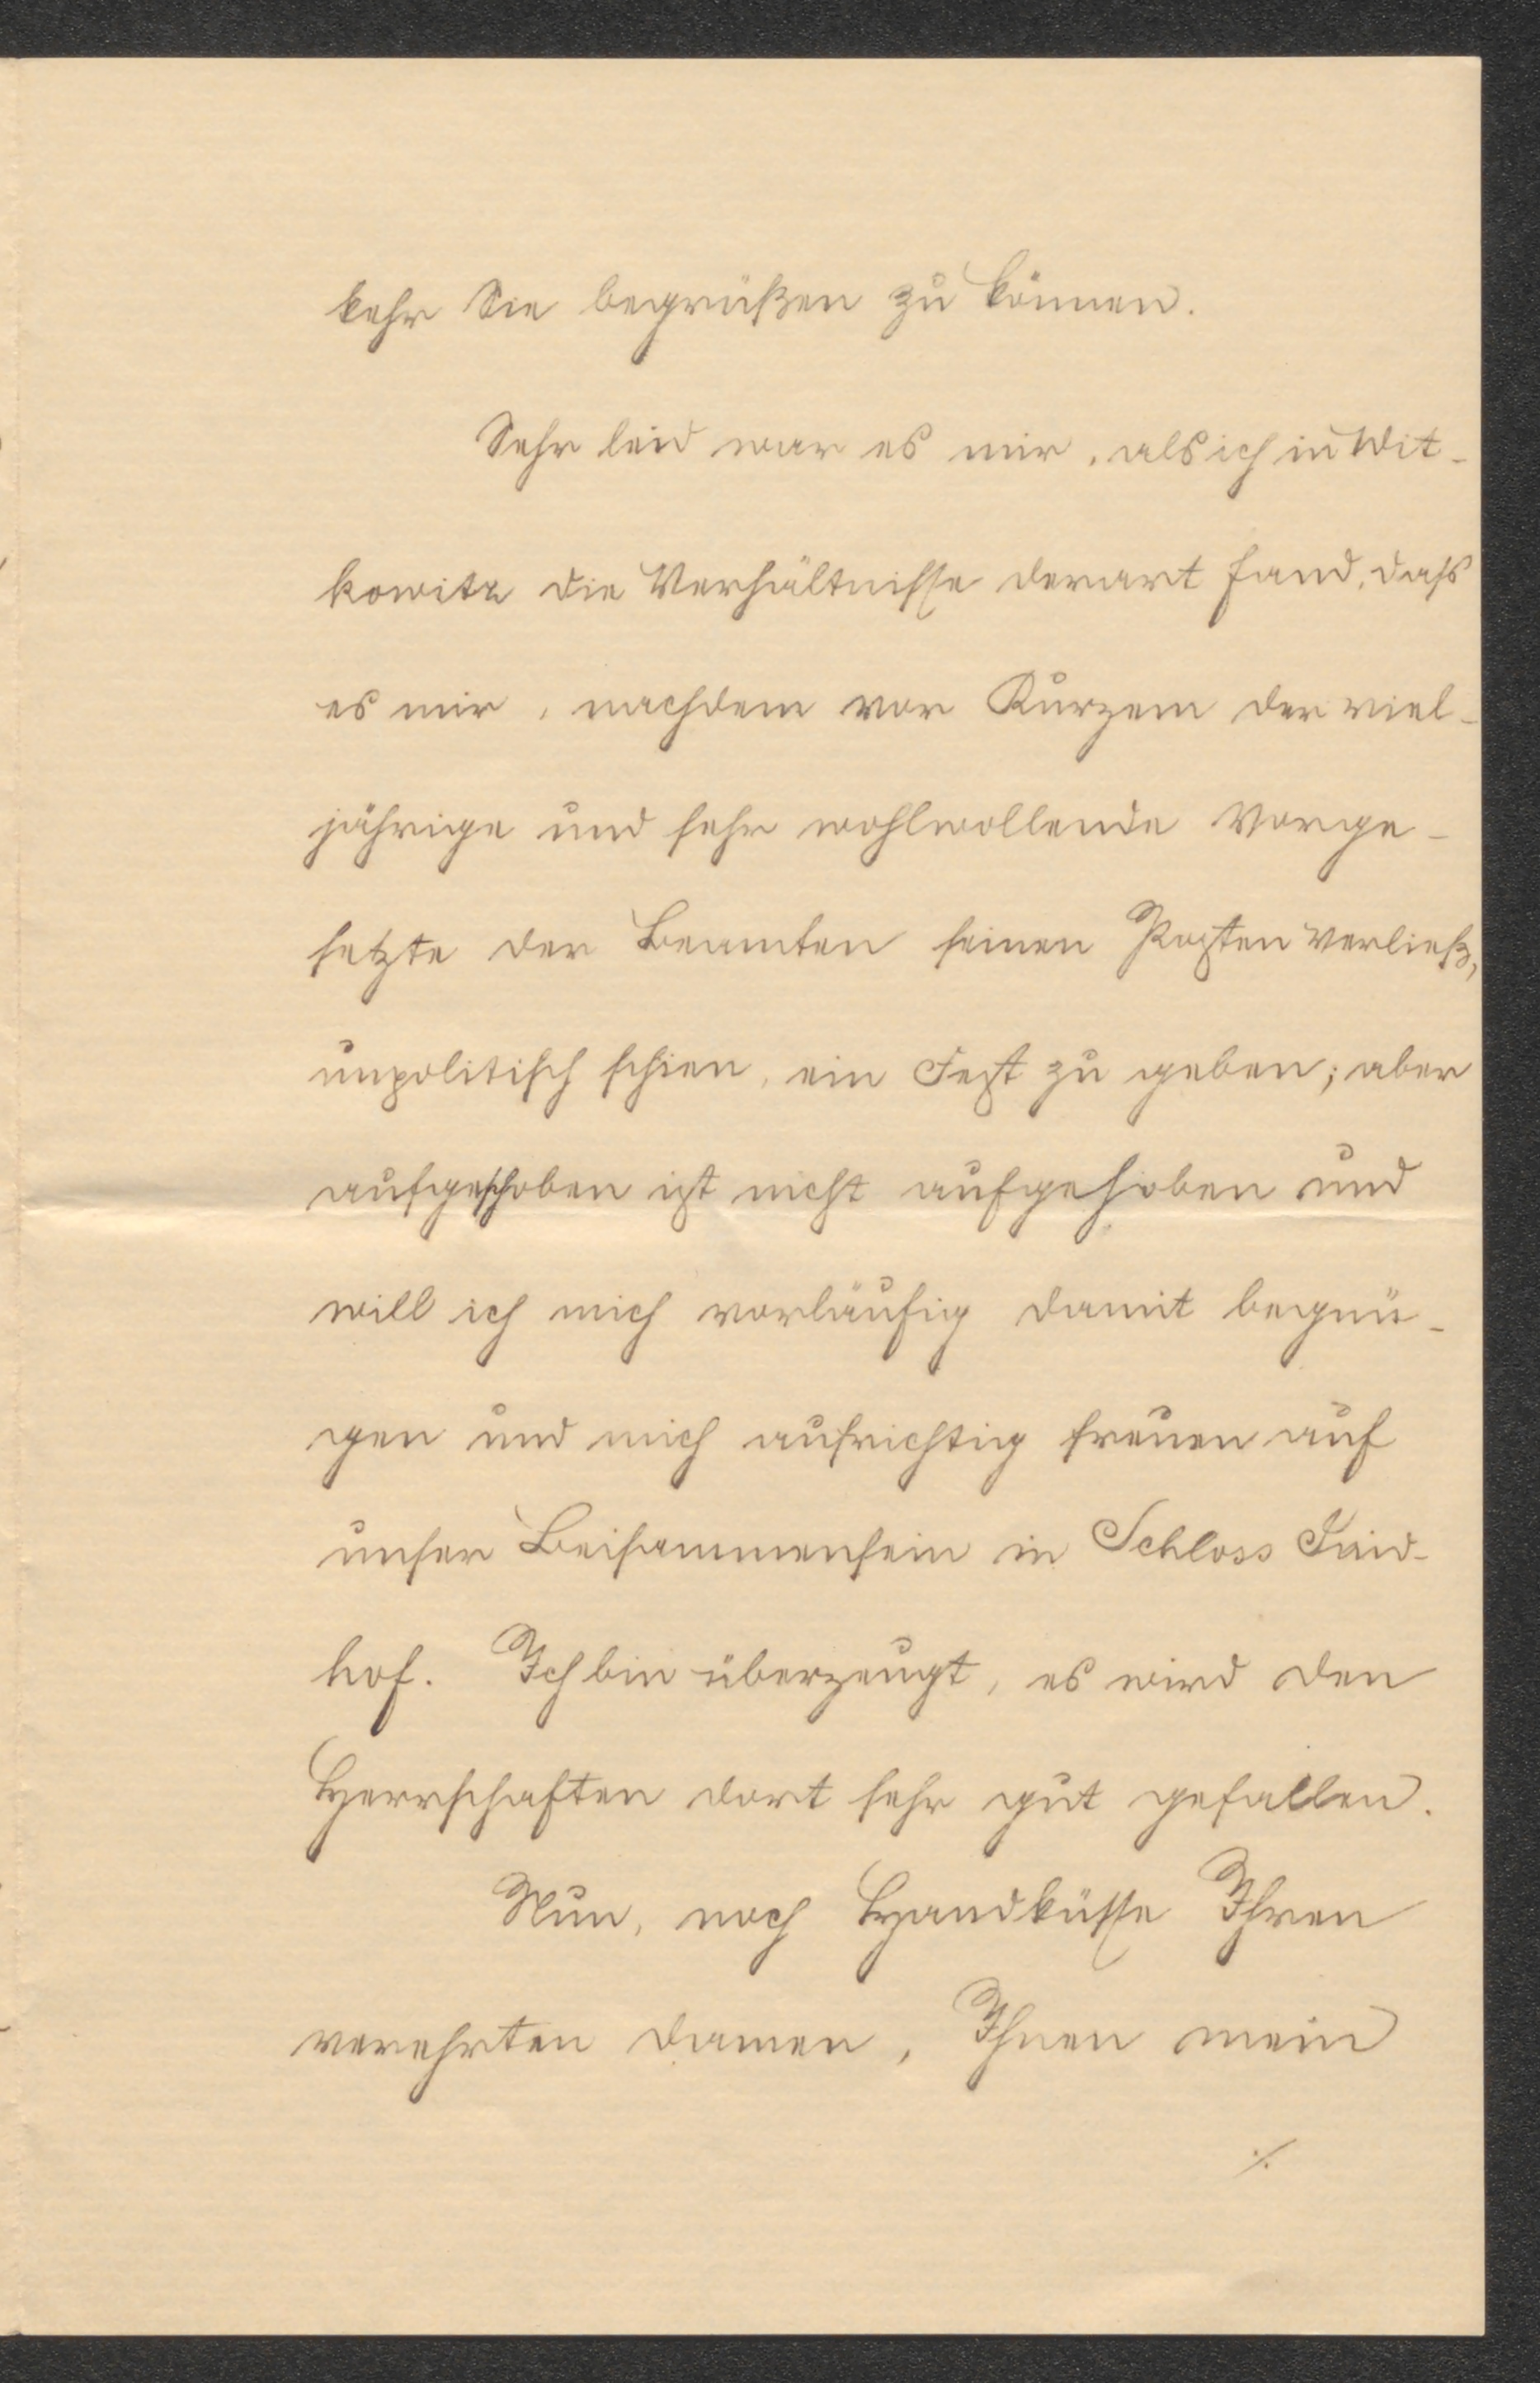 kehr Sie begrüßen zu können.
Sehr leid war es mir, als ich in Wit-
kowitz die Verhältnisse derart fand, dass
es mir, nachdem vor Kurzem der viel-
jährige und sehr wohlwollende Vorge-
setzte der Beamten seinen Posten verließ,
unpolitisch schien, ein Fest zu geben; aber
aufgeschoben ist nicht aufgehoben und
will ich mich vorläufig damit begnü-
gen und mich aufrichtig freuen auf
unser Beisammensein in Schloss
hof. Ich bin überzeugt, es wird den
Herrschaften dort sehr gut gefallen.
Nun, noch Handküsse Ihren
verehrten Damen, Ihnen mein
./.